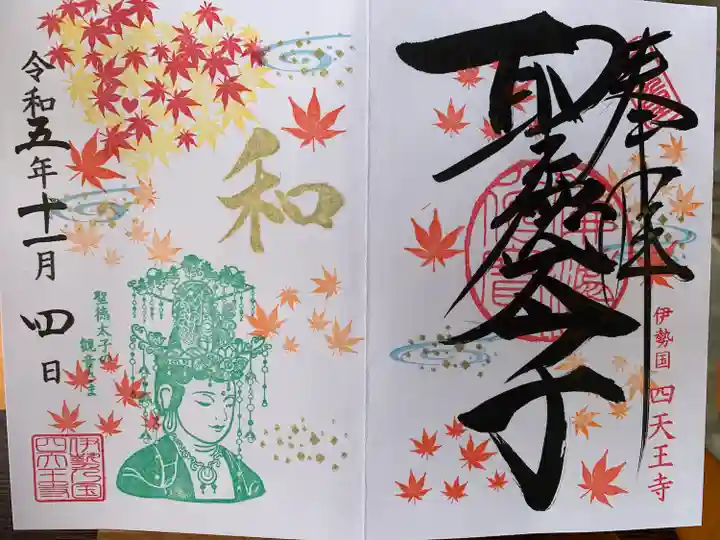 奉拝
聖徳太子
伊勢国 四天王寺
和
令和五年十一月四日
聖徳太子の
観音さま